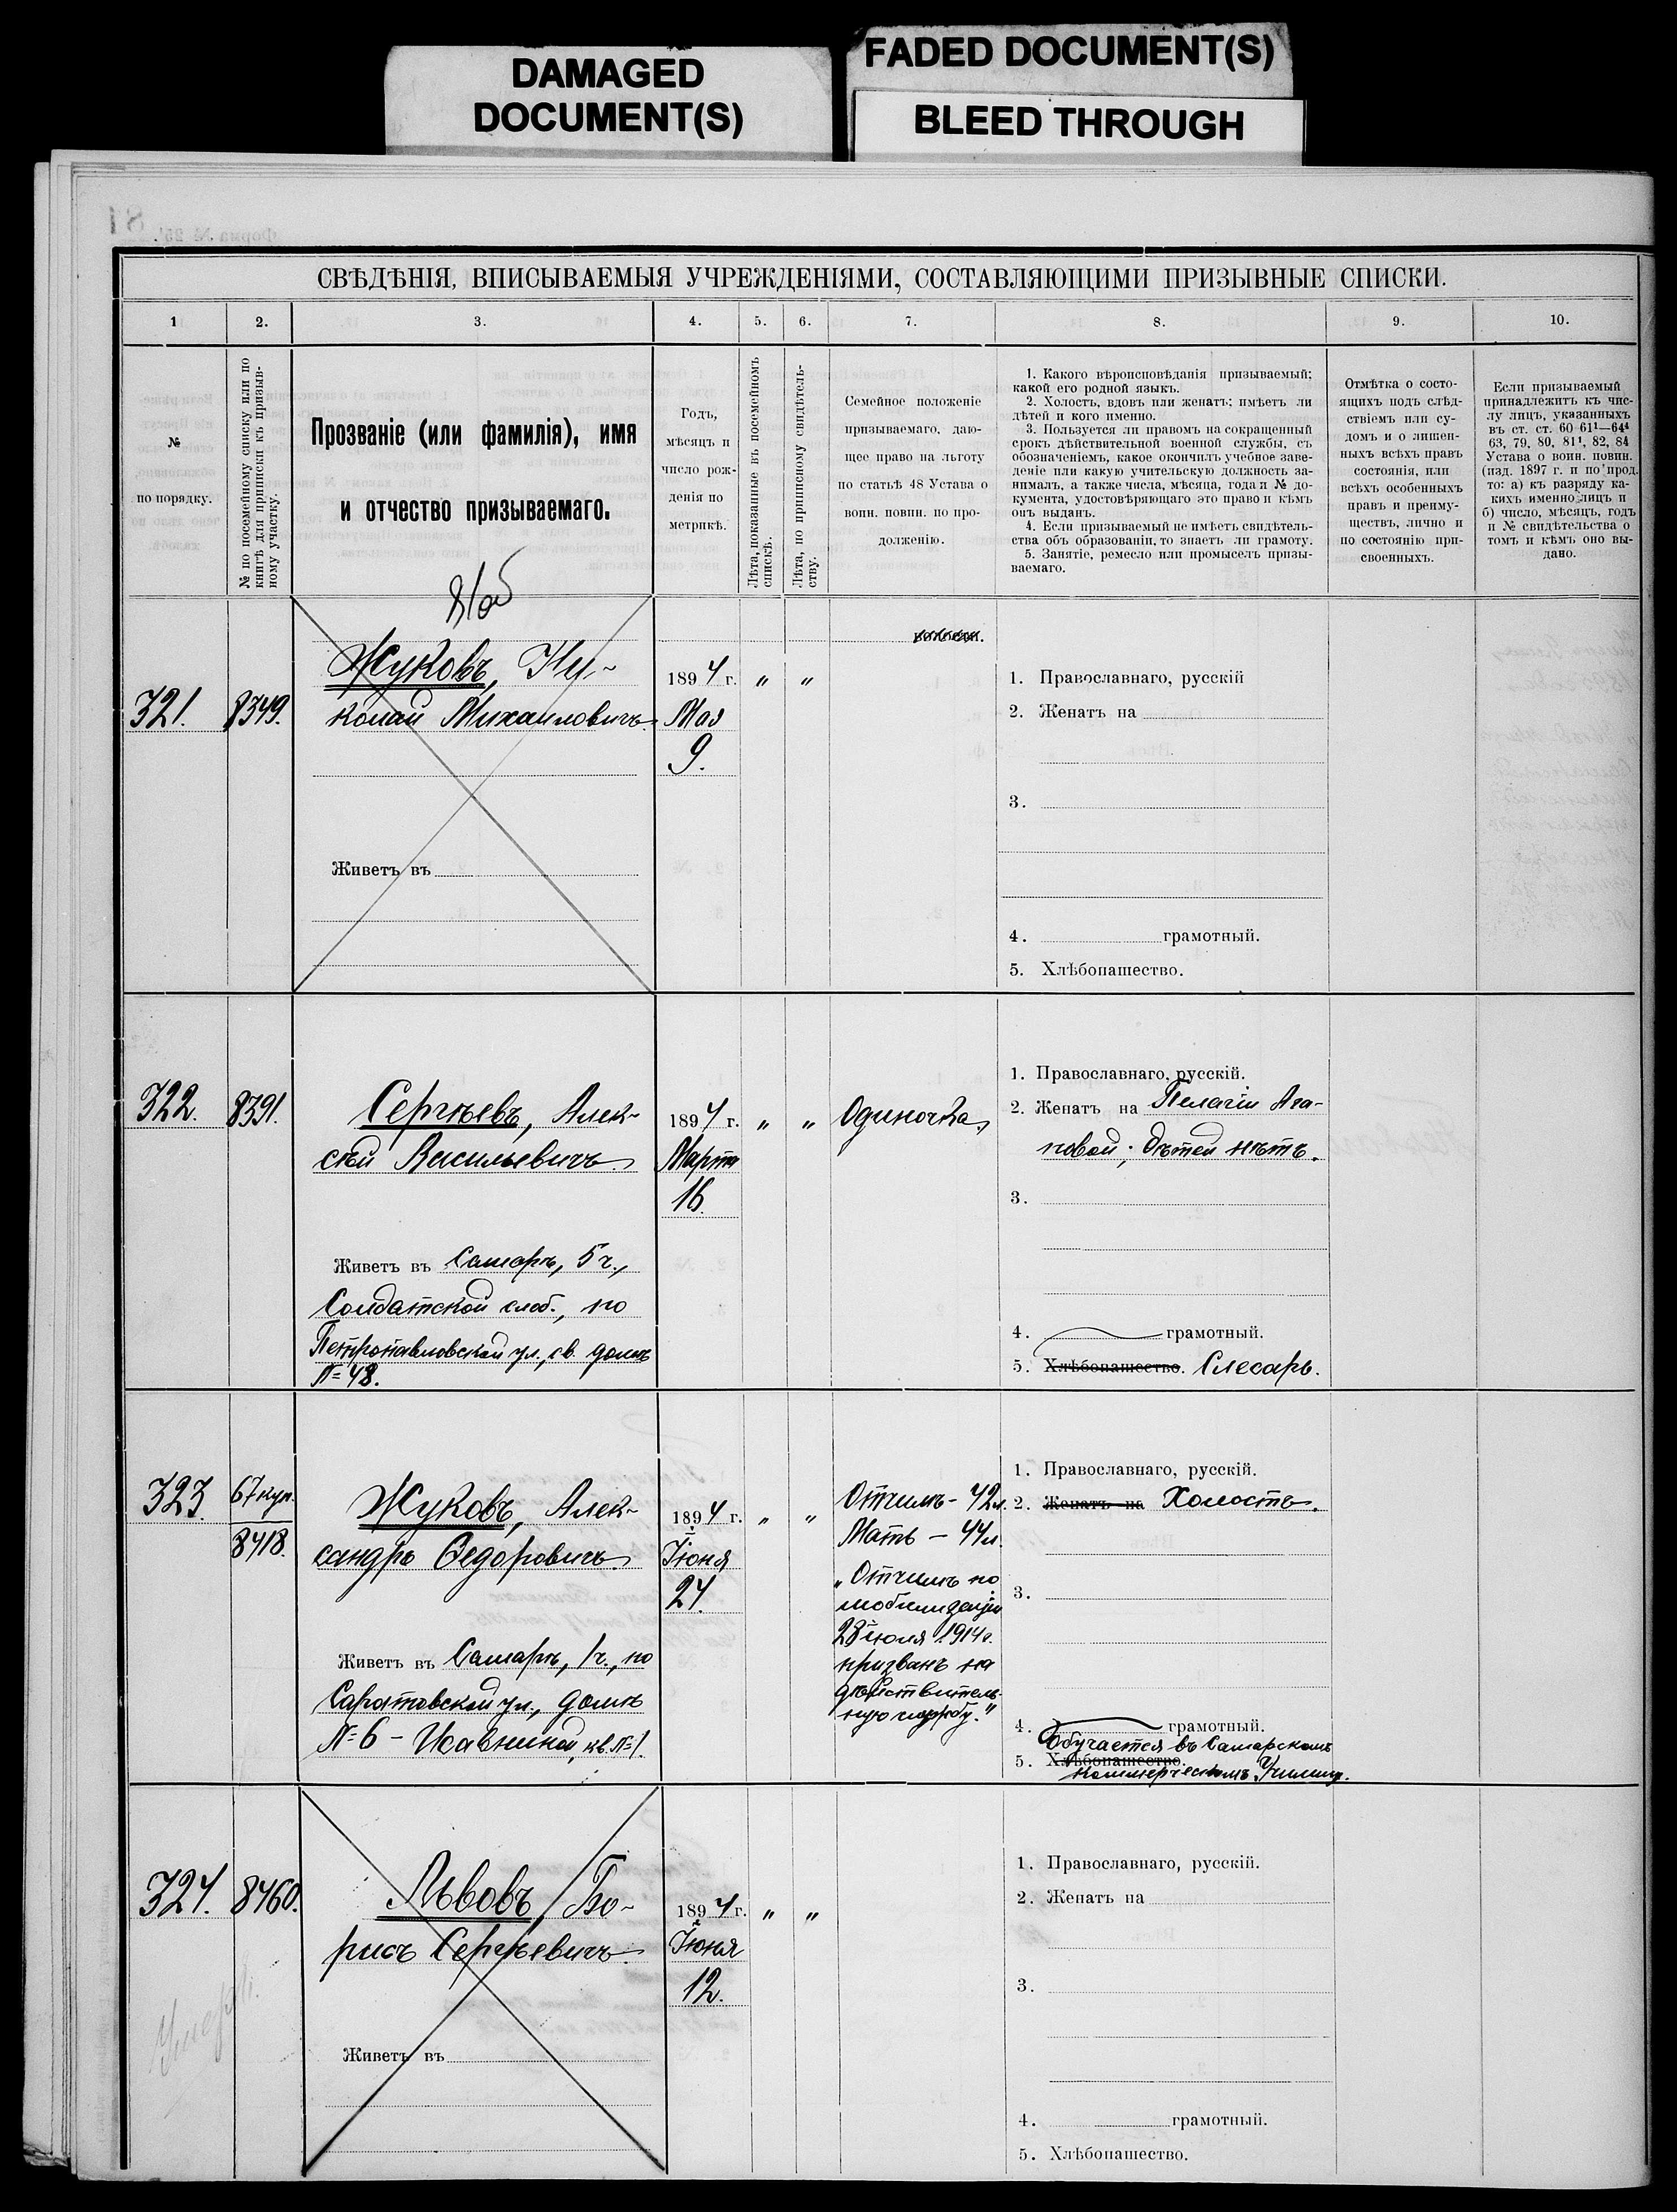 DAMAGED
DOCUMENT(S)
FADED DOCUMENT(S)
BLEED THROUGH
81
Форма № 25
СВѢДѢНІЯ, ВПИСЫВАЕМЫЯ УЧРЕЖДЕНІЯМИ, СОСТАВЛЯЮЩИМИ ПРИЗЫВНЫЕ СПИСКИ.
1 2. 3. 4. 5. 6. 7. 8. 9. 10.
№
по порядку.
№ по посемейному списку или по
книгѣ для приписки къ призыв-
ному участку.
Прозваніе (или фамилія), имя
и отчество призываемаго.
Годъ,
мѣсяцъ и
число рож-
денія по
метрикѣ.
Лѣта, показанные въ посемейномъ
спискѣ.
Лѣта, по приписному свидѣтель-
ству.
Семейное положеніе
призываемаго, даю-
щее право на льготу
по статьѣ 48 Устава о
воин. повин. по про-
долженію.
1. Какого вѣроисповѣданія призываемый;
какой его родной языкъ.
2. Холостъ, вдовъ или женатъ; имѣетъ ли
дѣтей и кого именно.
3. Пользуется ли правомъ на сокращенный
срокъ дѣйствительной военной службы, съ
обозначеніемъ, какое окончилъ учебное заве-
деніе или какую учительскую должность за-
нималъ, а также числа, мѣсяца, года и № до-
кумента, удостовѣряющаго это право и кѣмъ
онъ выданъ.
4. Если призываемый не имѣетъ свидѣтель-
ства объ образованіи, то знаетъ ли грамоту.
5. Занятіе, ремесло или промыселъ призы-
ваемаго.
Отмѣтка о состо-
ящихъ подъ слѣд-
ствіемъ или су-
домъ и о лишен-
ныхъ всѣхъ правъ
состоянія, или
всѣхъ особенныхъ
правъ и преиму-
ществъ, лично и
по состоянію при-
своенныхъ.
Если призываемый
принадлежитъ къ чис-
лу лицъ, указанныхъ
въ ст. ст. 60 61¹—64⁴
63, 79, 80, 81¹, 82, 84
Устава о воин. повин.
(изд. 1897 г. и по прод.
то: а) къ разряду ка-
кихъ именно лицъ и
б) число, мѣсяцъ, годъ
и № свидѣтельства о
томъ и кѣмъ оно вы-
дано.
321. 8349.
Жуковъ, Ни-
колай Михаиловичъ
Живетъ въ
1894 г. " "
Мая
9.
1. Православнаго, русскій
2. Женатъ на
3.
4. грамотный.
5. Хлѣбопашество.
322. 8391.
Сергѣевъ, Алек-
сѣй Васильевичъ
Живетъ въ Самарѣ, 5 ч.,
Солдатской слоб., по
Петропавловской ул., св. домъ
№ 48.
1894 г. " "
Марта
16.
Одиночка.
1. Православнаго, русскій.
2. Женатъ на Пелагіи Ага-
повой; дѣтей нѣтъ.
3.
4. грамотный.
5. Хлѣбопашество. Слесарь.
323. 67 куп.
8418.
Жуковъ, Алек-
сандръ Ѳедоровичъ
Живетъ въ Самарѣ, 1 ч., по
Саратовской ул., домъ
№ 6 – кв. № 1.
1894 г. " "
Іюня
24.
Отчимъ - 42 л.
Мать – 44 л.
„Отчимъ по
мобилизаціи
28 іюля 1914 г.
призванъ на
дѣйствитель-
ную службу."
1. Православнаго, русскій.
2. Женатъ на Холостъ.
3.
4. грамотный.
Обучается въ Самарскомъ
5. Хлѣбопашество.
Коммерческомъ Училищѣ.
324. 8460.
Умеръ.
Львовъ, Бо-
рисъ Сергѣевичъ
Живетъ въ
1894 г. " "
Іюня
12.
1. Православнаго, русскій.
2. Женатъ на
3.
4. грамотный.
5. Хлѣбопашество.